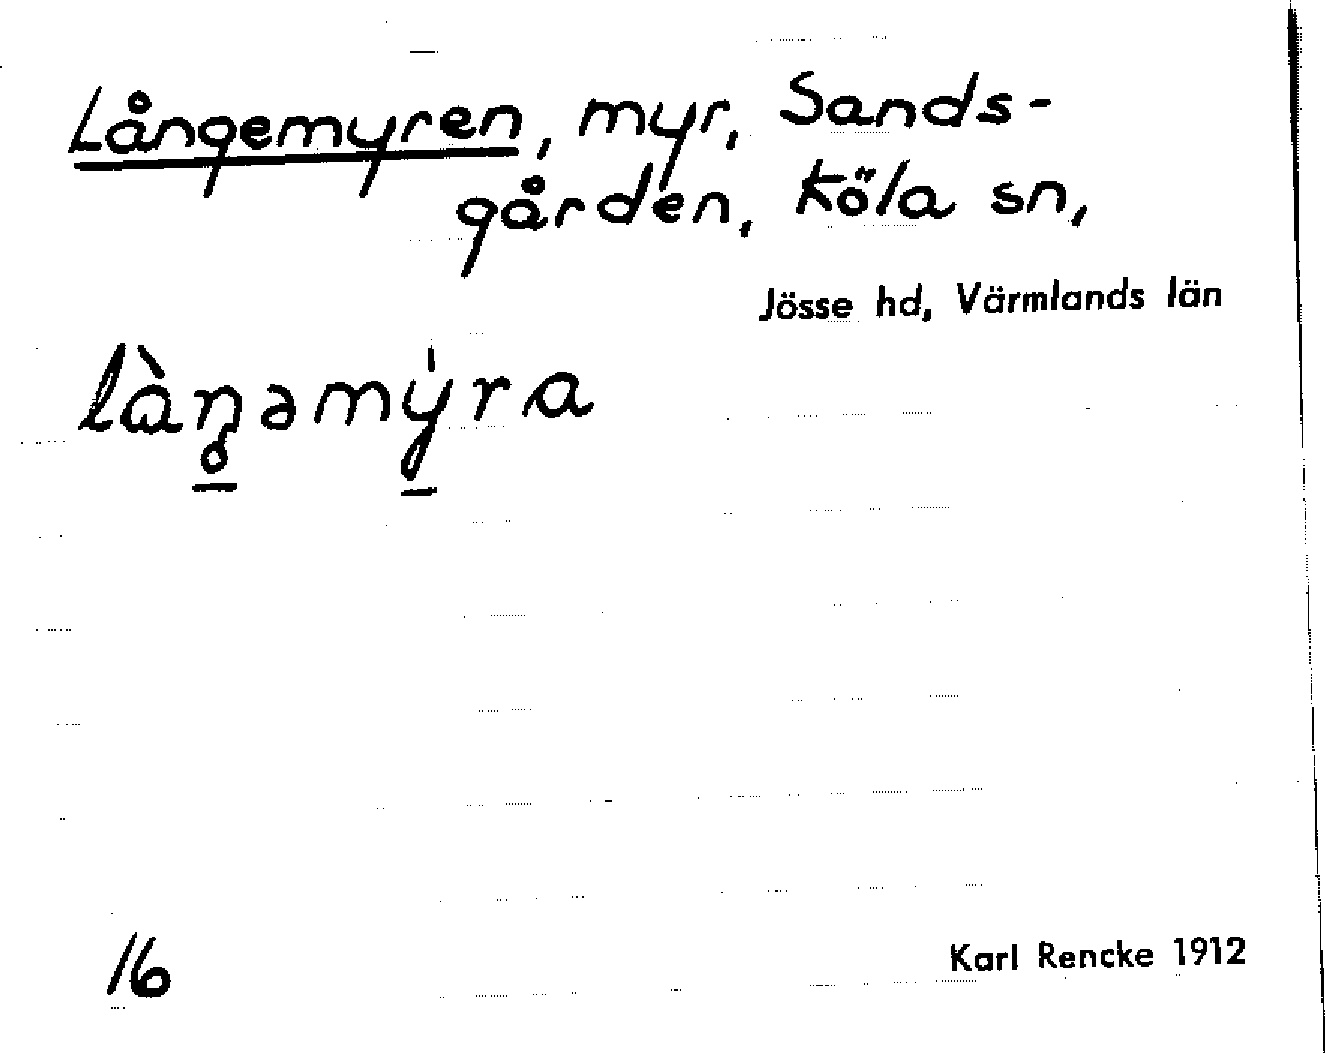 Långemyren, myr, Sands-
gården, Köla sn,
Jösse hd, Värmlands län
làŋəmýra
16
Karl Rencke 1912